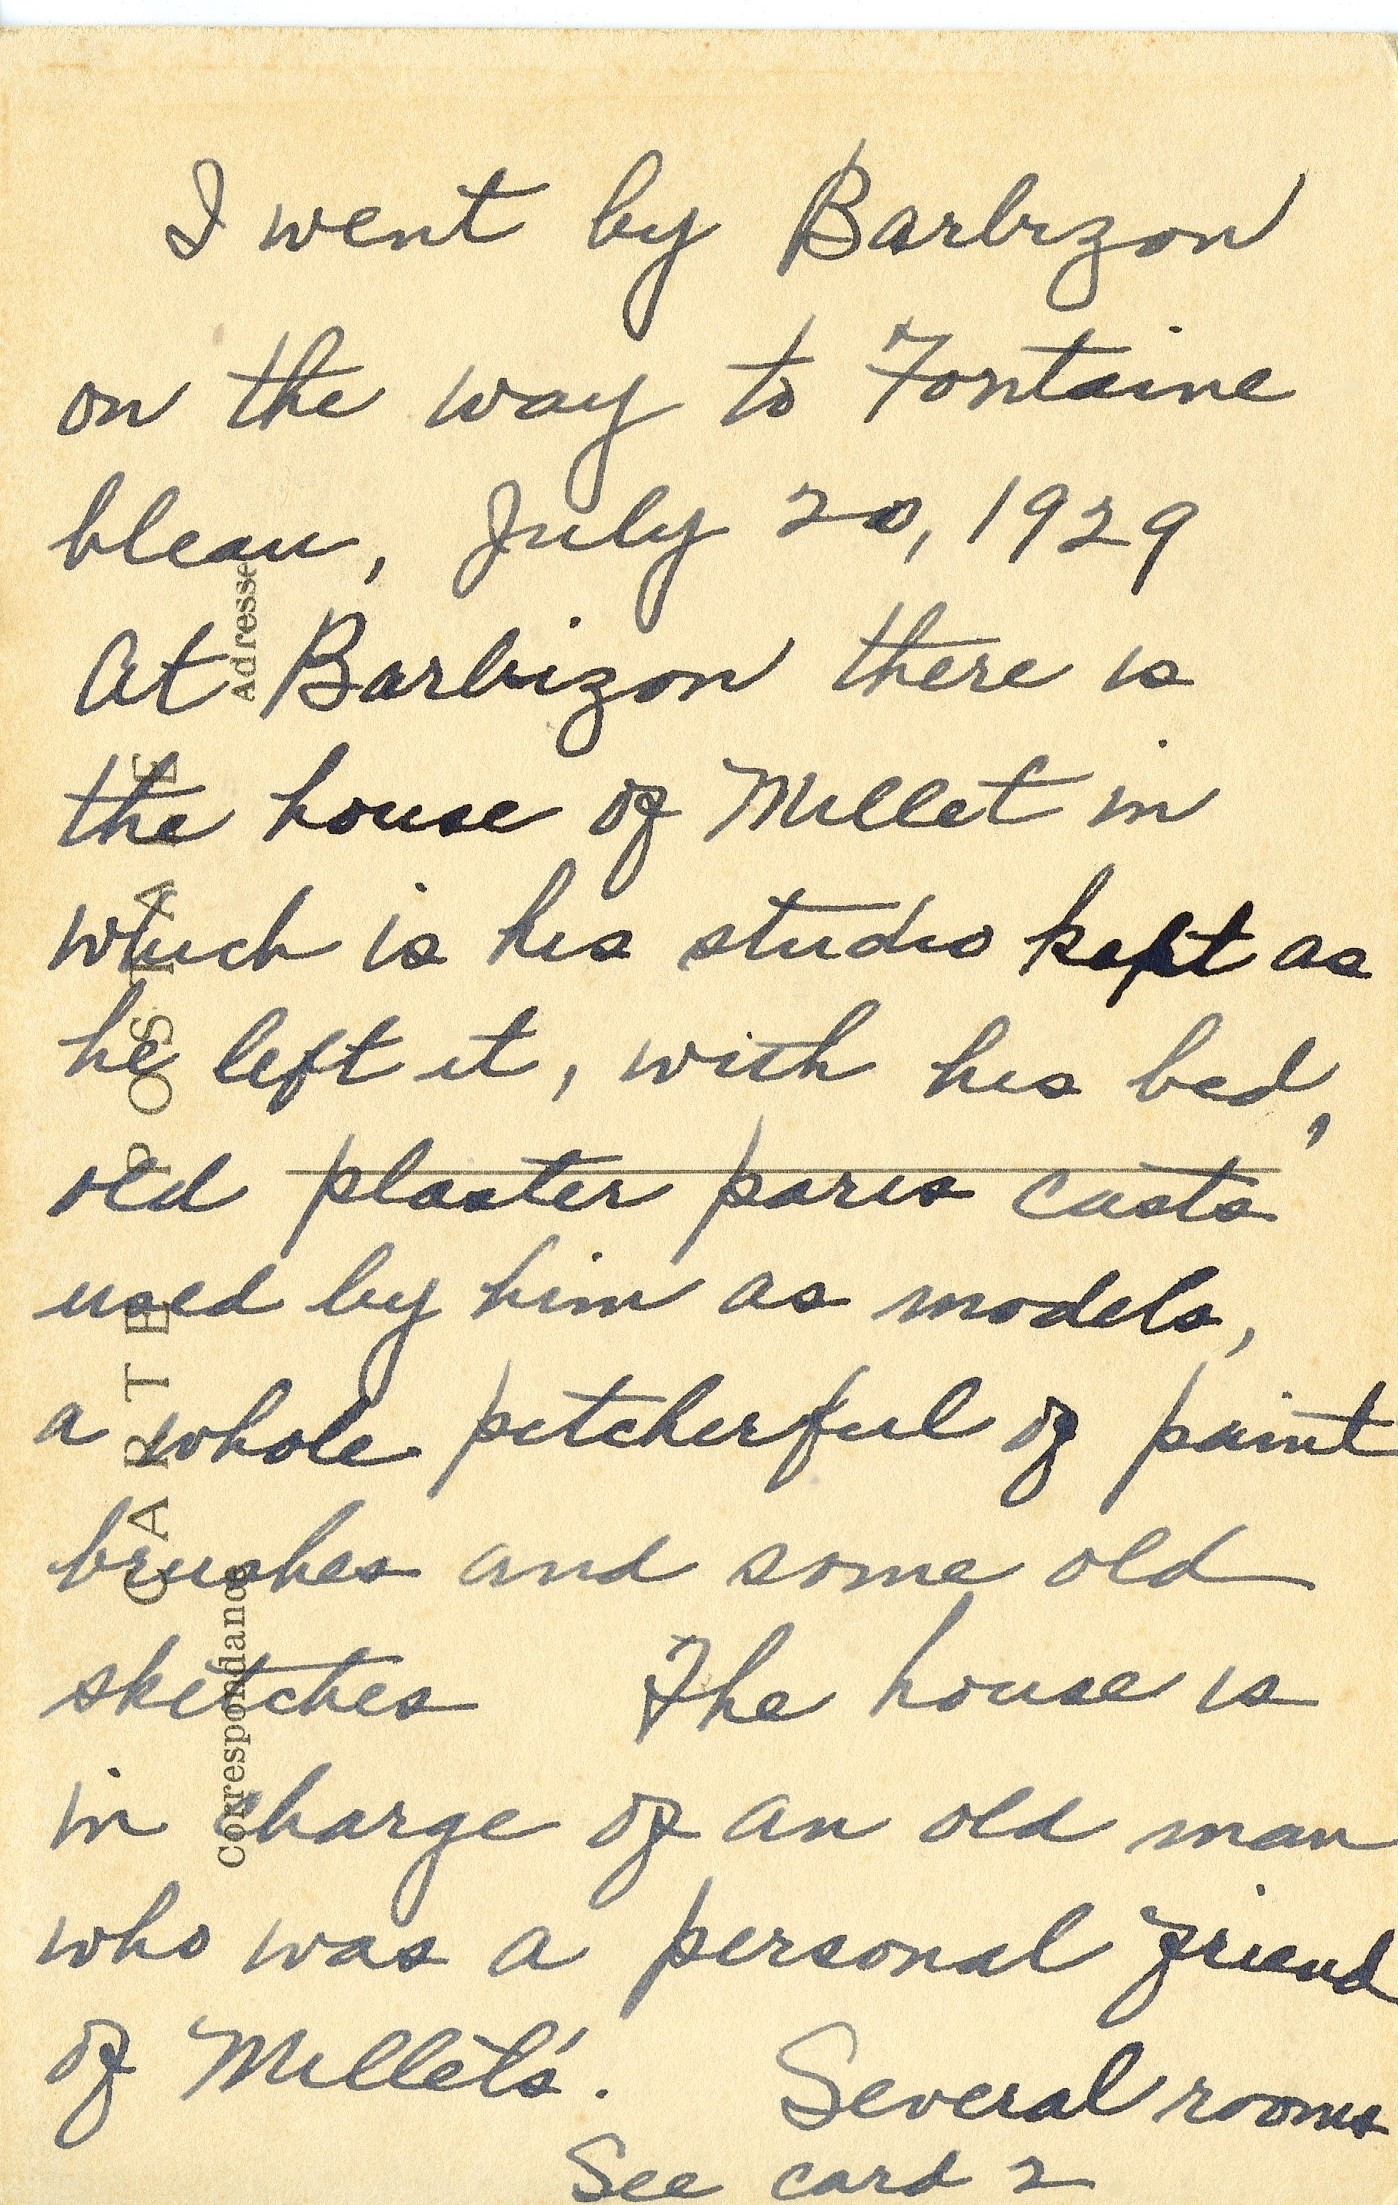 I went by Barbizon
on the way to Fontaine
bleau, July 20, 1929
At Barbizon there is
the house of Millet in
which is his studio kept as
he left it, with his bed,
old plaster paris casts
used by him as models,
a whole pitcherful of paint
brushes and some old
sketches The house is
in charge of an old man
who was a personal friend
of Millet's. Several rooms
See card 2
CARTE POSTALE
Correspondance
Adresse